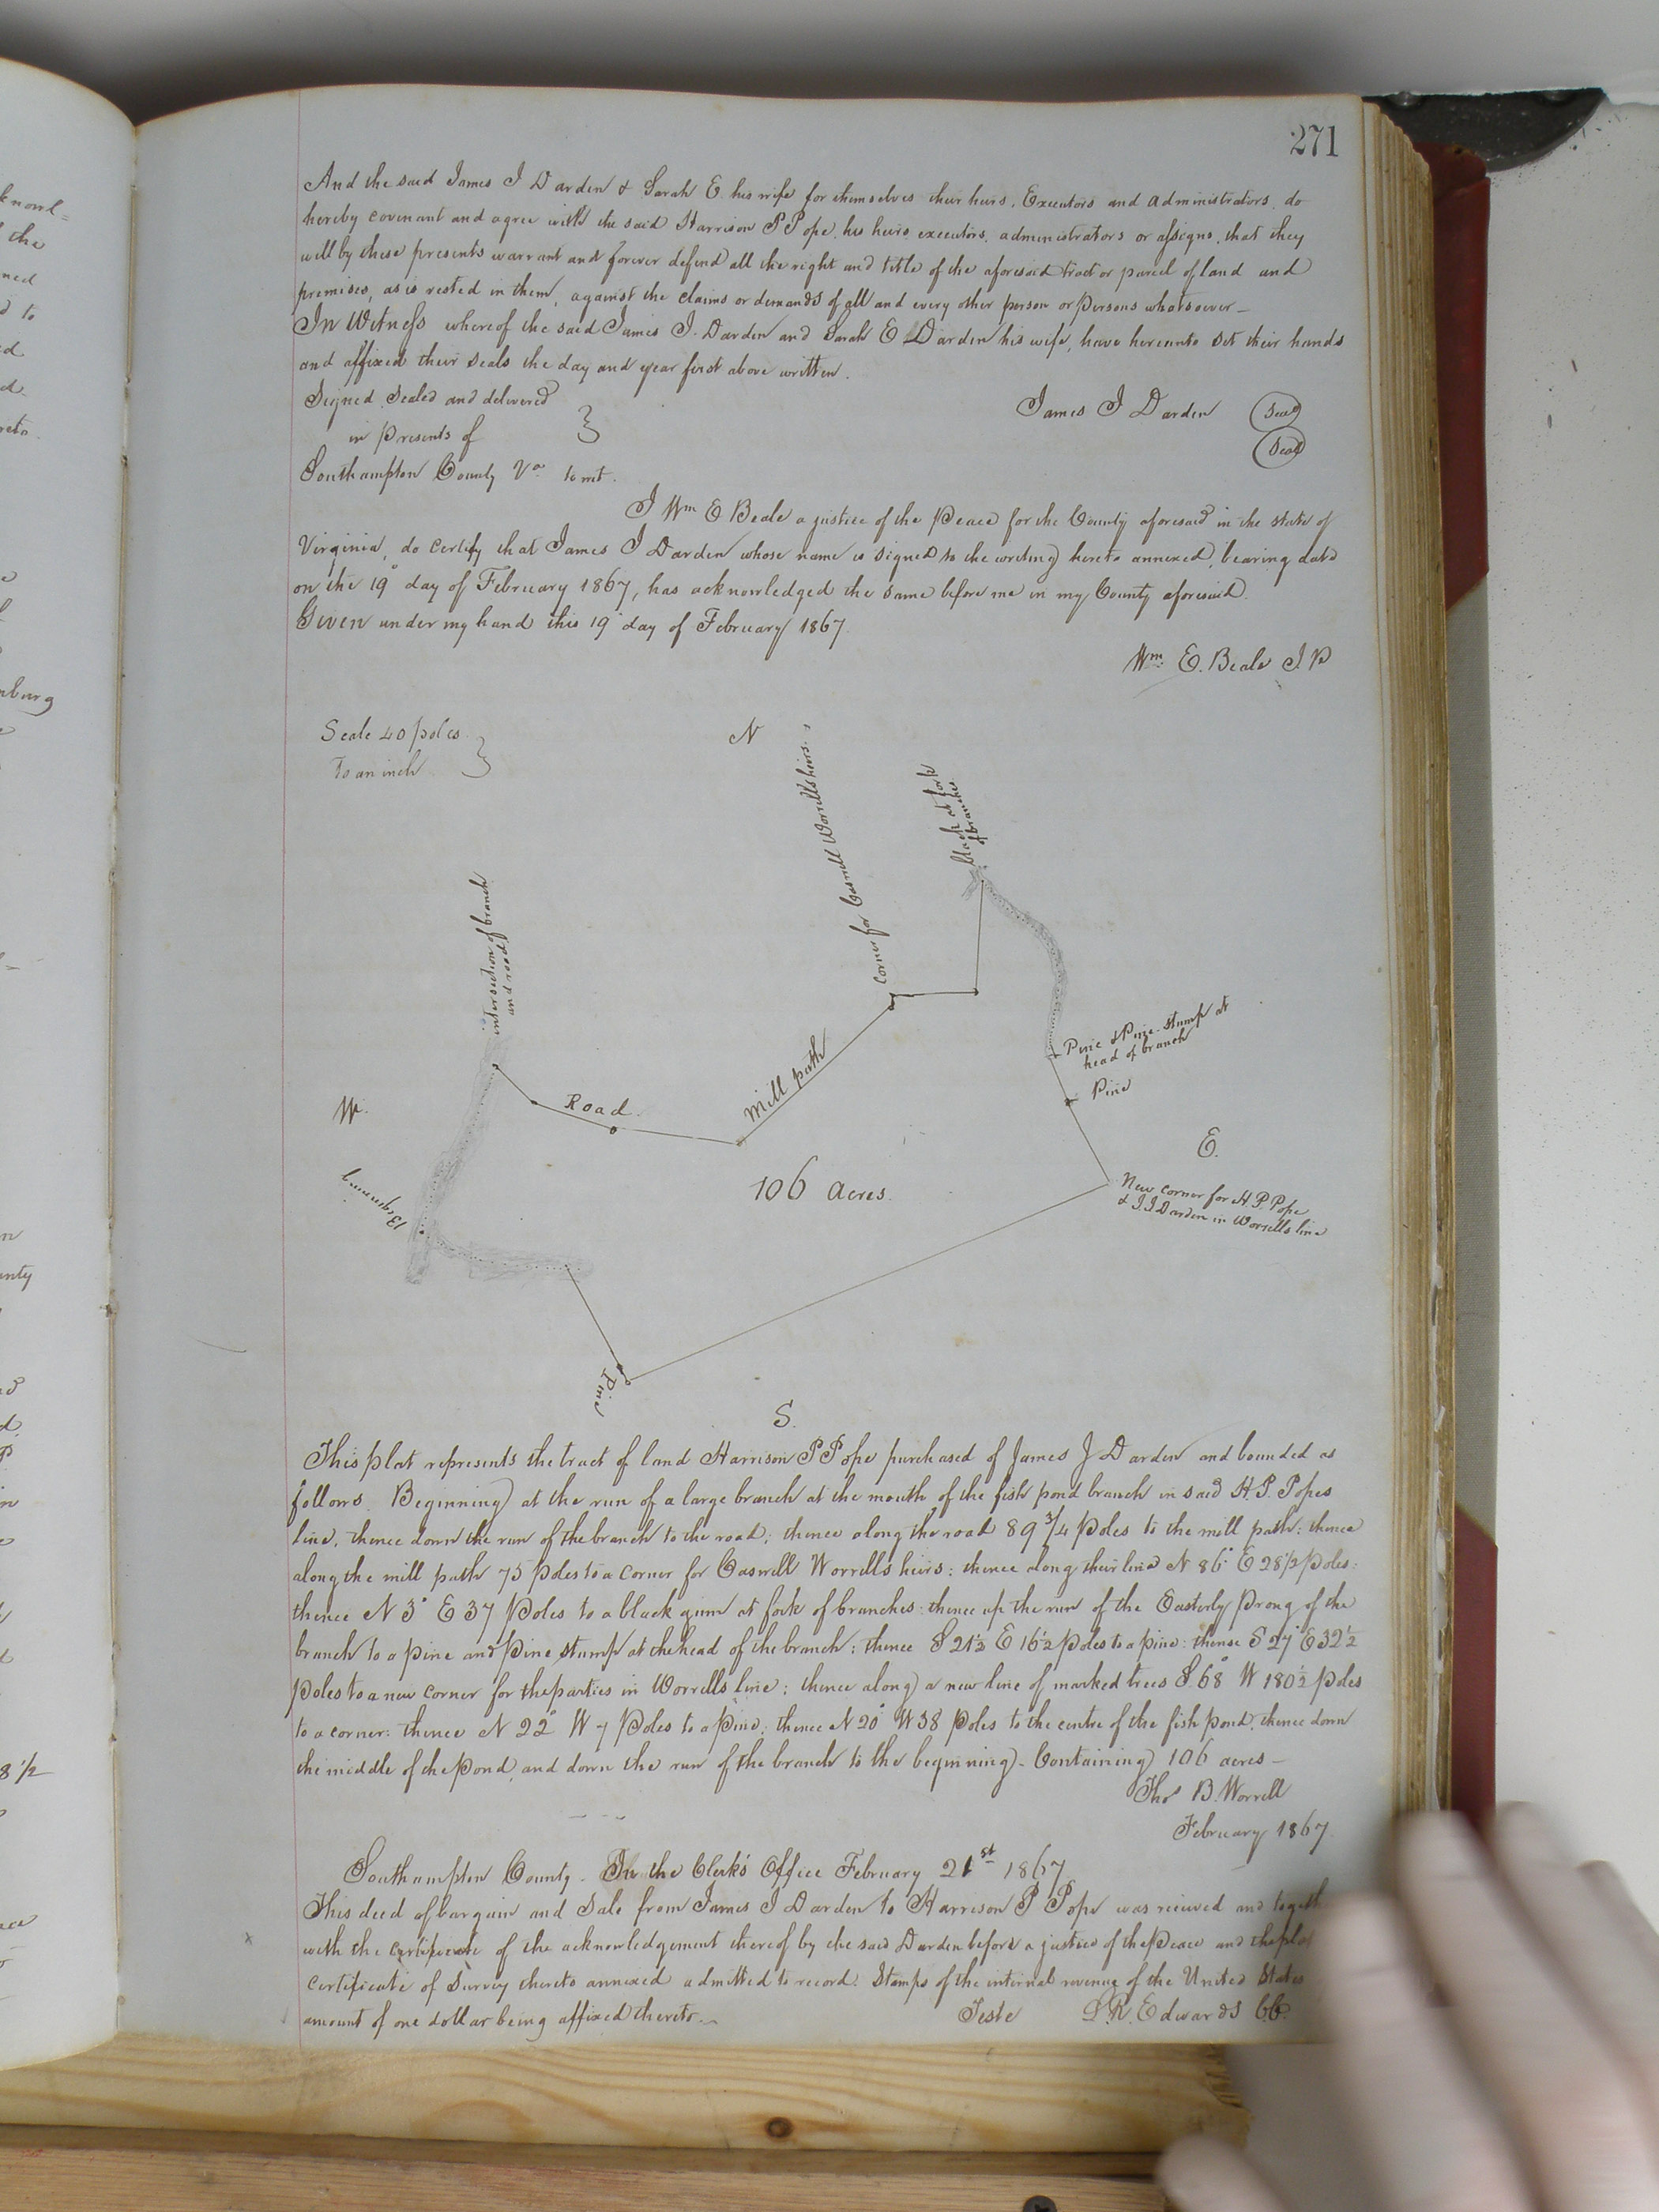 271
And the said James J Darden & Sarah E. his wife for themselves their heirs, Executors and Administrators, do
hereby covenant and agree with the said Harrison P Pope, his heirs, executors, administrators or assigns, that they
will by these presents warrant and forever defend all the right and title of the aforesaid tract or parcel of land and
premises, as is vested in them, against the claims or demands of all and every other person or persons whatsoever_
In Witness whereof the said James J. Darden and Sarah E Darden his wife, have hereunto set their hands
and affixed their seals the day and year first above written.
Signed Sealed and delivered
in presents of
James J Darden Seal
Seal
Southampton County Va to wit.
I Wm E Beale a justice of the Peace for the County aforesaid in the state of
Virginia, do certify that James J Darden whose name is signed to the writing hereto annexed, bearing date
on the 19" day of February 1867, has acknowledged the same before me in my County aforesaid.
Given under my hand this 19 day of February 1867.
Wm E. Beale J. P
Scale 40 poles
To an inch
N
intersection of branch
and road
corner for Caswell Worrells heirs.
fork
of branches
Pine & Pine Stump at
head of branch
Pine
W.
Road.
Mill path
E.
106 Acres.
New corner for H. P. Pope
& J. J Darden in Worrells line
Beginning
Pine
S.
This plat represents the tract of land Harrison P Pope purchased of James J Darden and bounded as
follows. Beginning at the run of a large branch at the mouth of the fish pond branch in said H. P. Popes
line, thence down the run of the branch to the road; thence along the road 89 3/4 Poles to the mill path; thence
along the mill path 75 poles to a corner for Caswell Worrells heirs; thence along their line N 86° E 28 1/2 poles;
thence N 3° E 37 Poles to a black gum at fork of branches: thence up the run of the Easterly prong of the
branch to a pine and pine stump at the head of the branch; thence S 21 1/2 E 16 1/2 poles to a pine; thence S 27° E 32 1/2
poles to a new corner for the parties in Worrells line; thence along a new line of marked trees S. 68° W 180 1/2 poles
to a corner; thence N 22° W 7 Poles to a pine, thence N 20° W 38 Poles to the centre of the fish pond, thence down
the middle of the Pond, and down the run of the branch to the beginning - Containing 106 acres -
Thos B. Worrell
February 1867
Southampton County - In the Clerk's Office February 21st 1867
This deed of bargain and Sale from James J Darden to Harrison P Pope was received and togeth
with the certificate of the acknowledgement thereof by the said Darden before a justice of the Peace and the plot
certificate of Survey thereto annexed admitted to record. Stamps of the internal revenue of the United States
amount of one dollar being affixed thereto._
Teste L. R. Edwards C.C.